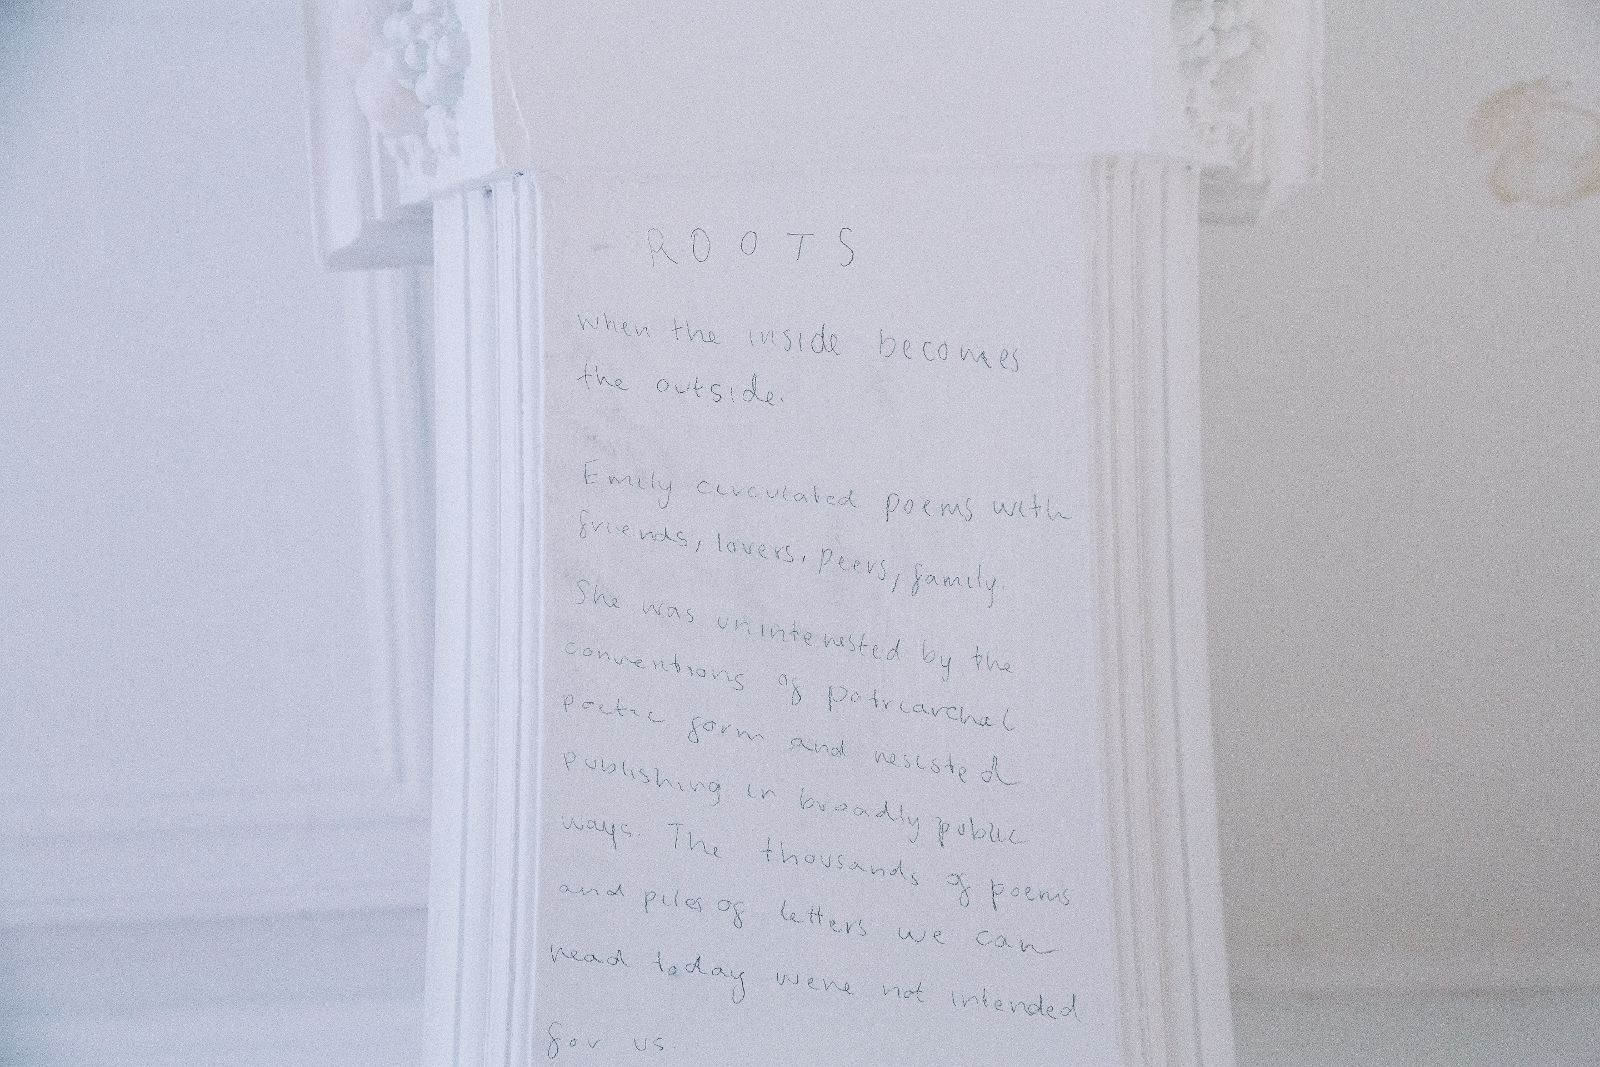 ROOTS
when the inside becomes
the outside.
Emily circulated poems with
friends, lovers, peers, family.
She was uninterested by the
conventions of patriarchal
poetic form and resisted
publishing in broadly public
ways. The thousands of poems
and piles of letters we can
read today were not intended
for us.